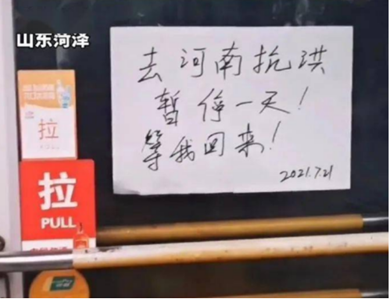 山东菏泽
去河南抗洪
暂停一天！
等我回来！
2021.7.21
拉
拉
PULL